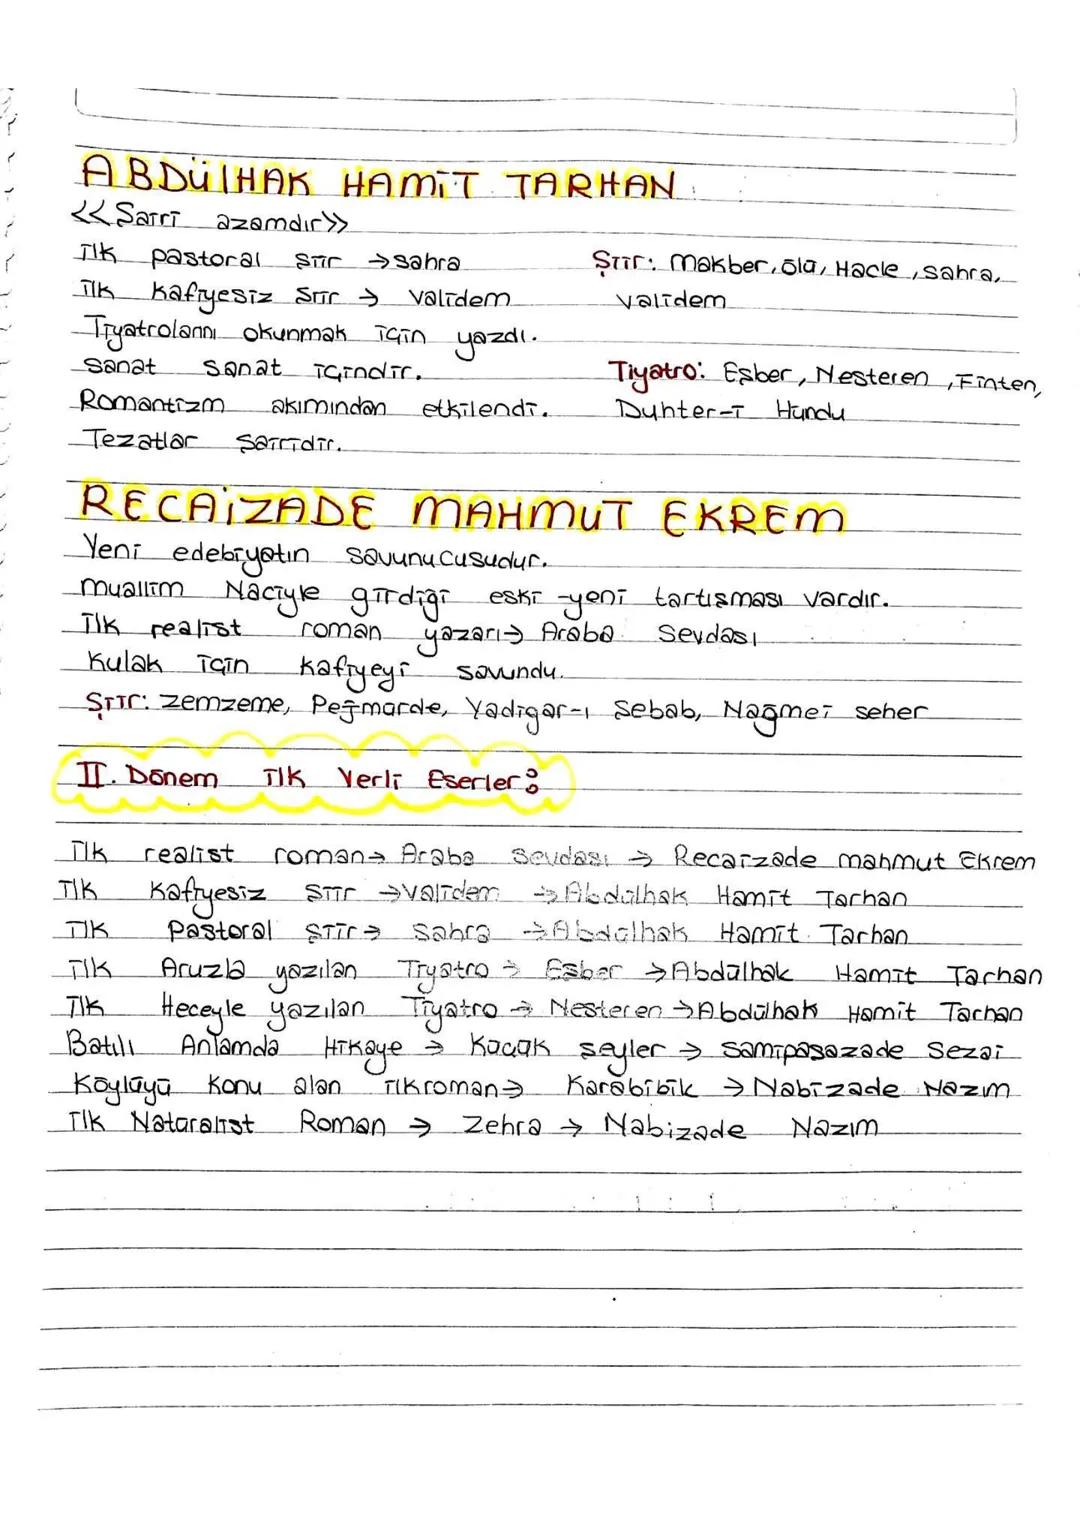 ABDÜLHAK HAMİT TARHAN
<<Şairi azamdır>>
İlk pastoral şiir → sahra
Şiir: Makber, ölü, Hacle, sahra,
İlk kafiyesiz şiir → validem
validem
Tiyatrolarını okunmak için yazdı.
sanat sanat içindir.
Tiyatro: Eşber, Nesteren, Finten,
Romantizm akımından etkilendi.
Duhter-i Hundu
Tezatlar şairidir.
RECAİZADE MAHMUT EKREM
Yeni edebiyatın savunucusudur.
muallim Naciyle girdiği eski-yeni tartışması vardır.
İlk realist roman yazarı → Araba Sevdası
Kulak için kafiyeyi savundu.
Şiir: zemzeme, Pejmürde, Yadigar-ı Şebab, Nağmei seher
II. Dönem İlk Yerli Eserler:
İlk realist roman → Araba Sevdası → Recaizade mahmut Ekrem
İlk Kafiyesiz şiir → validem → Abdülhak Hamit Tarhan
İlk Pastoral şiir → Sahra → Abdülhak Hamit Tarhan
İlk Aruzla yazılan Tiyatro → Eşber → Abdülhak Hamit Tarhan
İlk Heceyle yazılan Tiyatro → Nesteren → Abdülhak Hamit Tarhan
Batılı Anlamda Hikaye → Küçük şeyler → Samipaşazade Sezai
Köylüyü konu alan ilk roman → Karabibik → Nabizade Nazım
İlk Natüralist Roman → Zehra → Nabizade Nazım